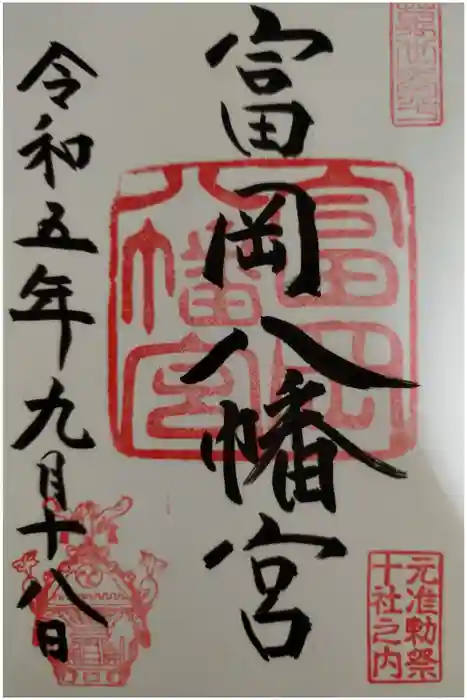 富岡八幡宮
令和五年九月十八日
富岡
八幡宮
元准勅祭
十社之内